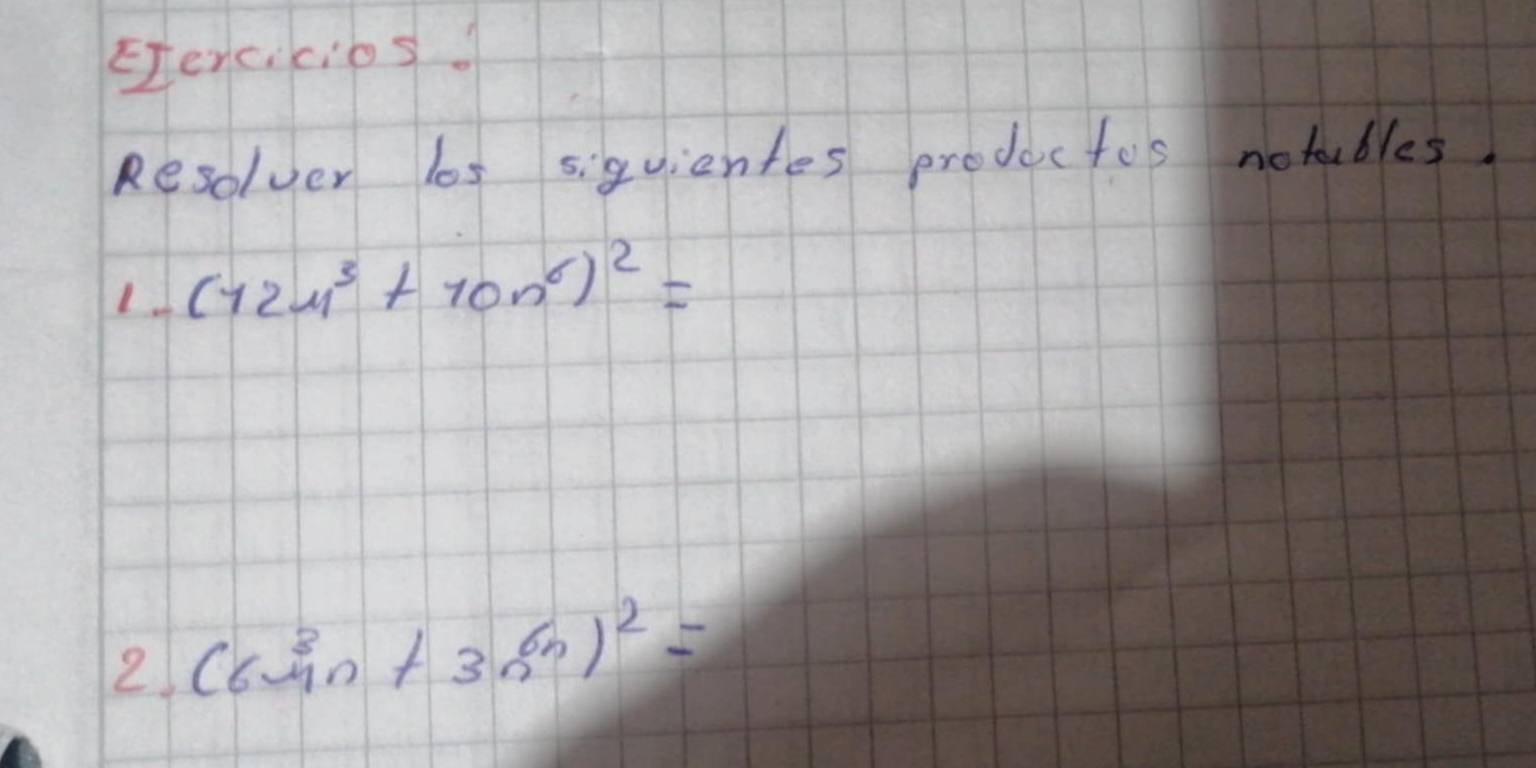 Ejercicios:
Resolver los siguientes productos notables.
1.- (12m³ + 10n⁶)² =
2. (6m³n + 3n⁶ⁿ)² =